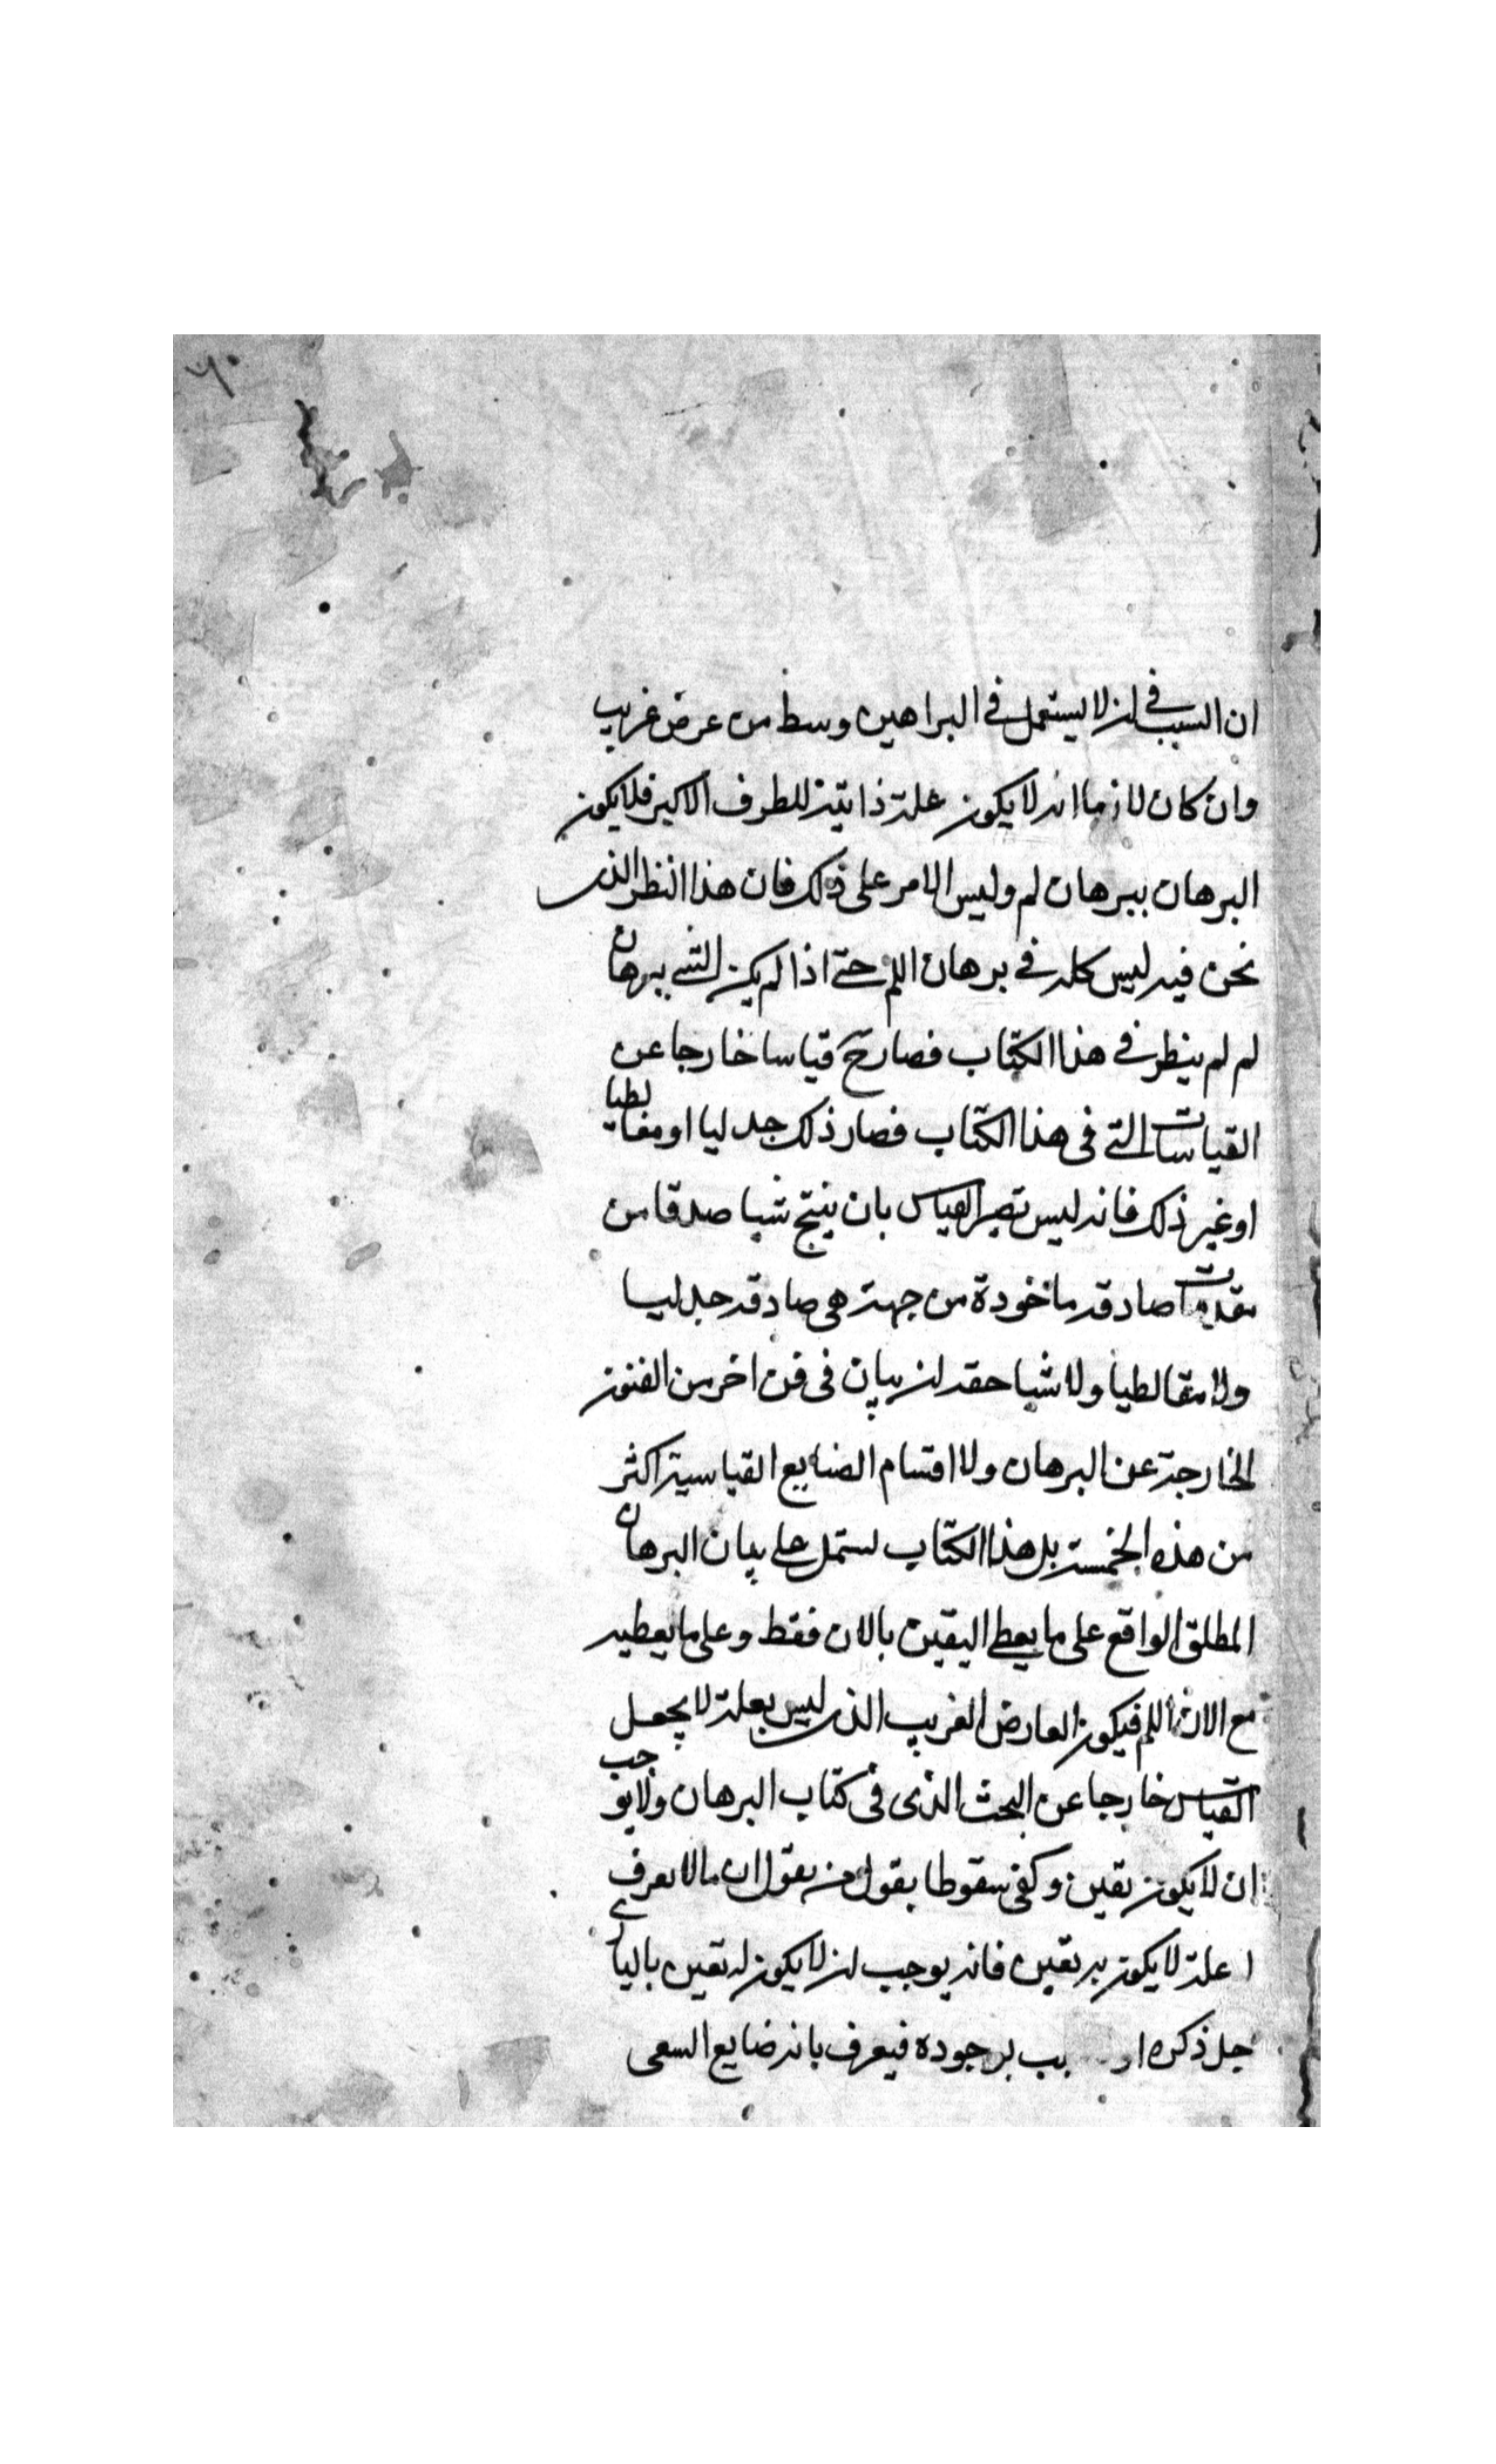 ٦٠
ان السبب في ان لا يستعمل في البراهين وسط من عرض غريب
وان كان لازما انه لا يكون علة ذاتية للطرف الاكبر فلا يكون
البرهان ببرهان لم وليس الامر على ذلك فان هذا النظر الذى
نحن فيه ليس كله في برهان اللم حتى اذا لم يكن الشي ببرهان
لم لم ينظر في هذا الكتاب فصار ح قياسا خارجا عن
القياسات التي فى هذا الكتاب فصار ذلك جدليا او مغالطيا
او غير ذلك فانه ليس تصير القياس بان ينتج شيا صدقا من
مقدمات صادقه ماخوذة من جهة هى صادقه جدليا
ولا مغالطيا ولا شيا حقه ان يبان فى فن اخر من الفنون
الخارجة عن البرهان ولا اقسام الصنايع القياسية اكثر
من هذه الخمسة بل هذا الكتاب يستمل على بيان البرهان
المطلق الواقع على ما يعطي اليقين بالان فقط وعلى ما يعطيه
مع الان اللم فيكون العارض الغريب الذى ليس بعلة لا يجعل
القياس خارجا عن البحث الذى فى كتاب البرهان ولا يوجب
ان لا يكون يقين وكفى سقوطا بقول من يقول ان مالا يعرف
علة لا يكون به يقين فانه يوجب ان لا يكون له يقين بالباري
جل ذكره بب لوجوده فيعرف بانه ضايع السعى